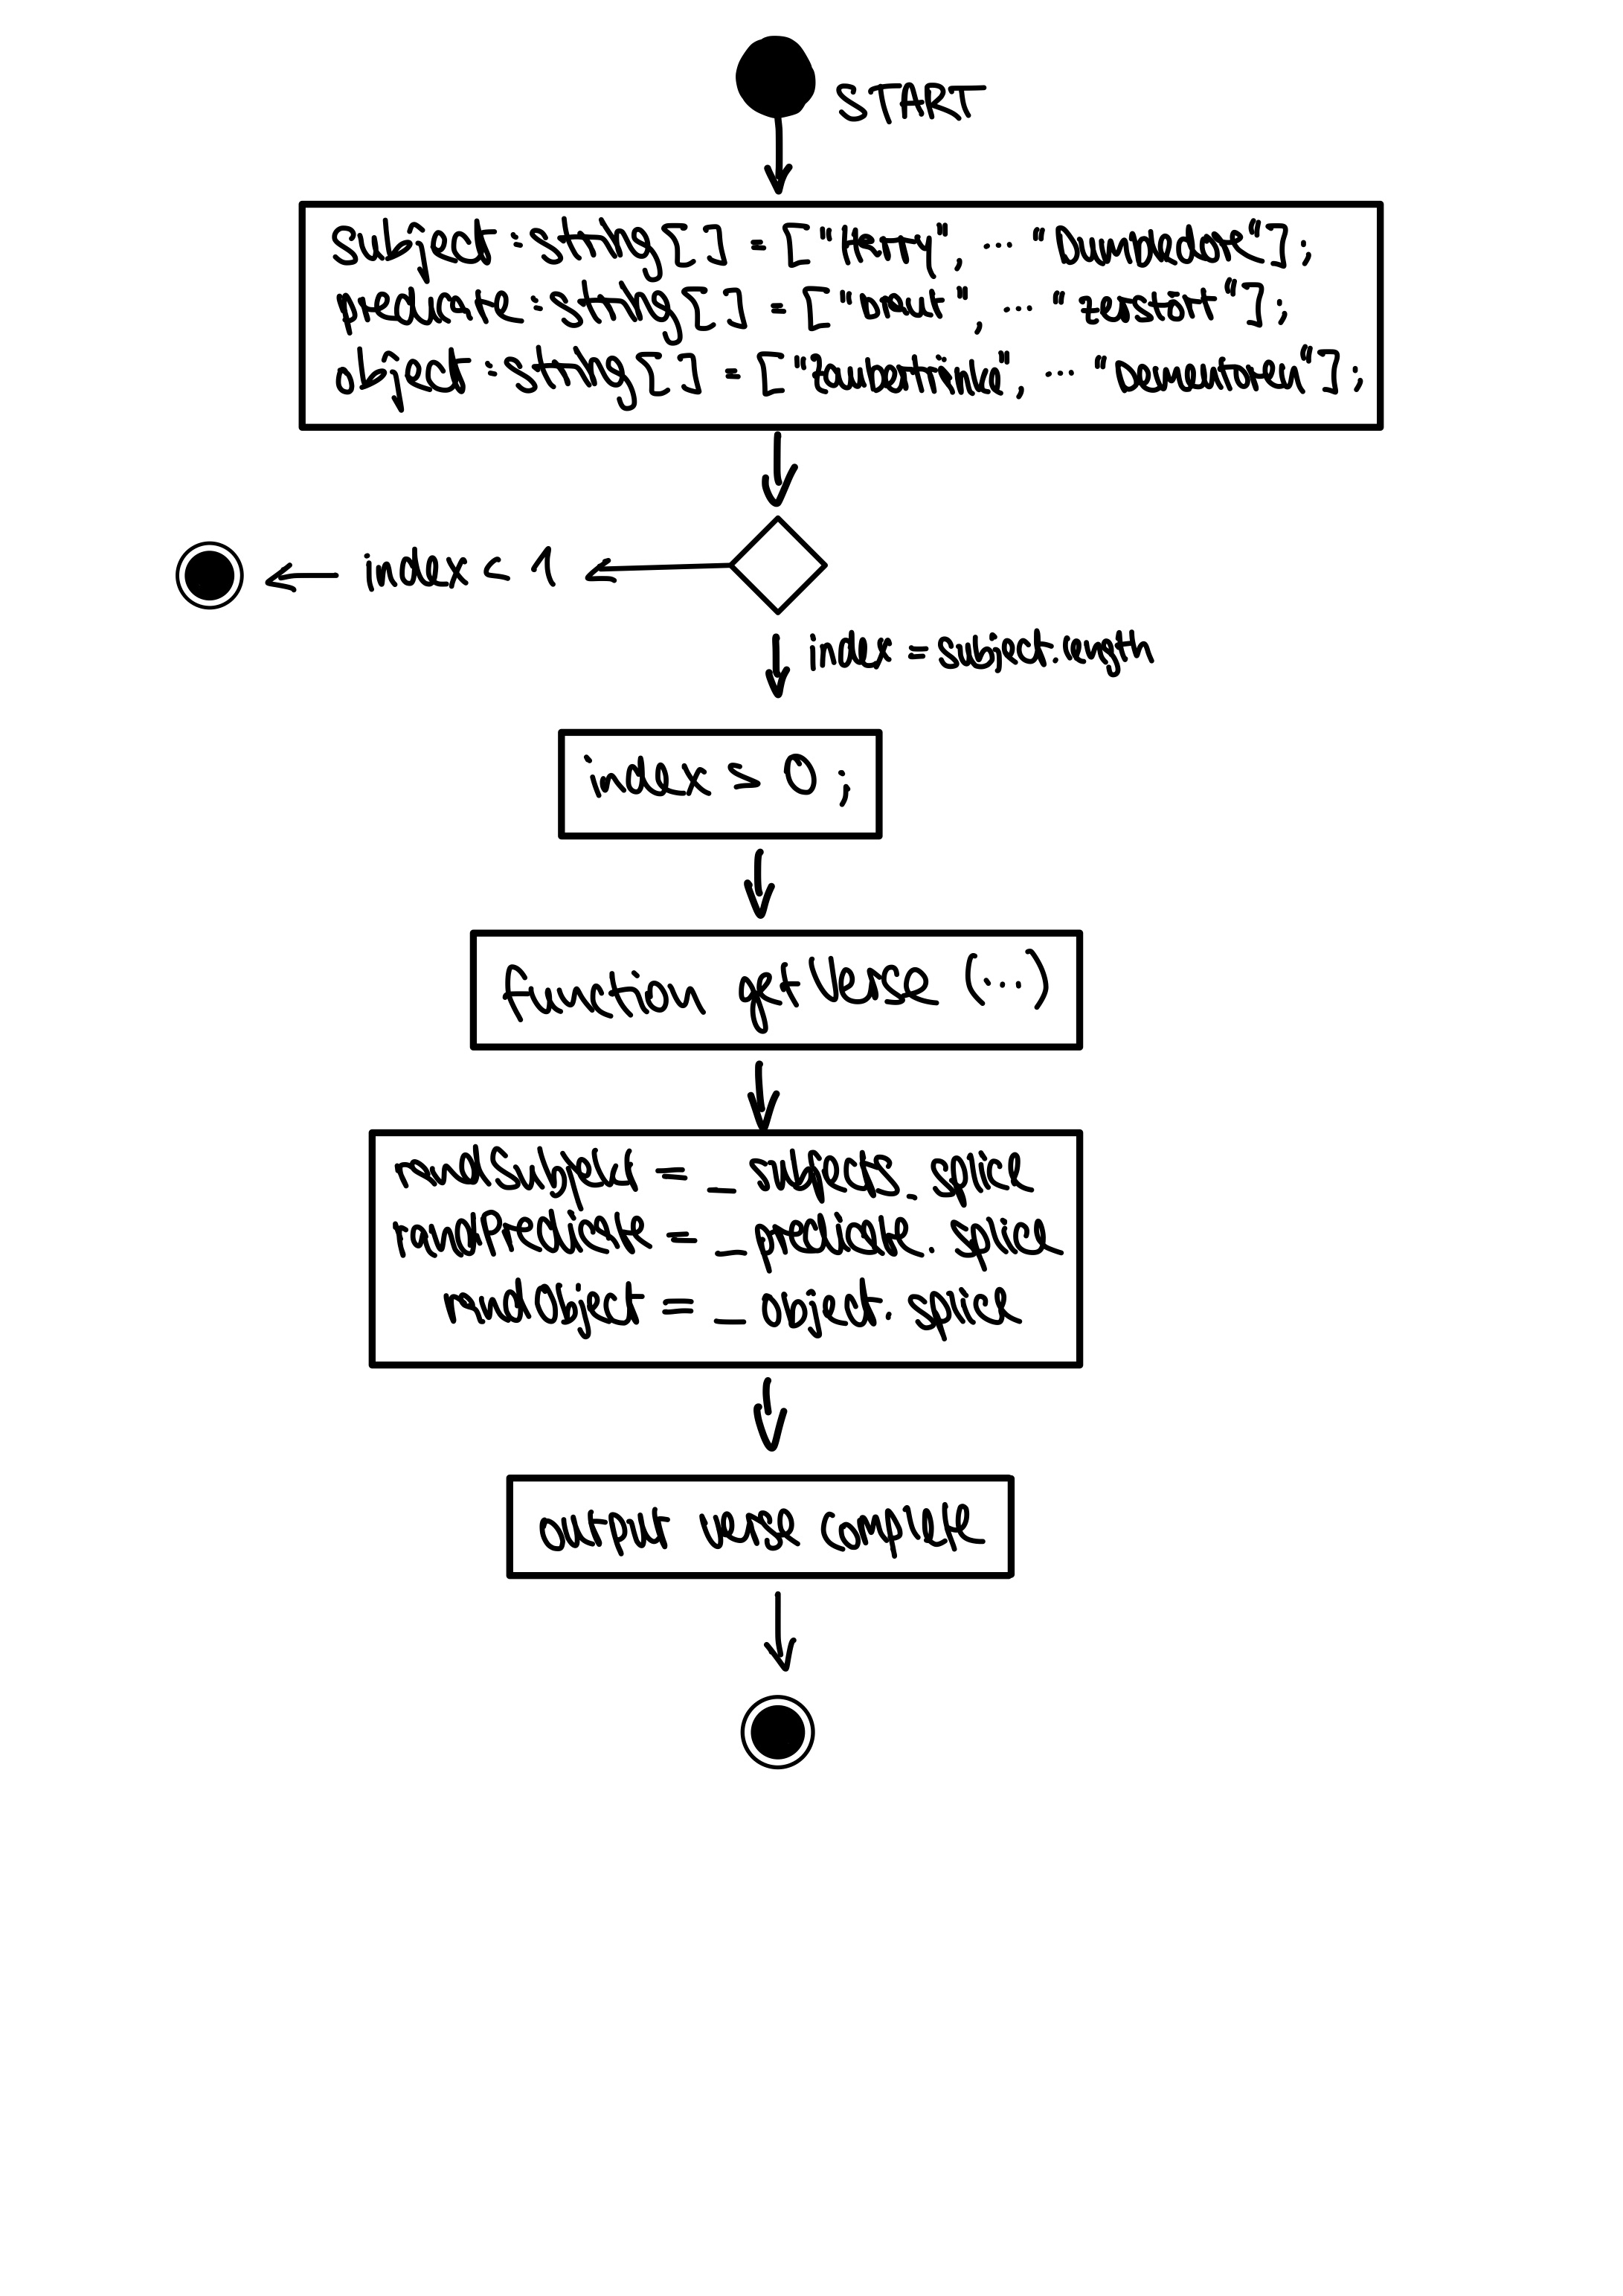 START
subject : string [ ] = ["Harry", ... "Dumbledore"];
predicate : string [ ] = ["braut", ... "zerstört"];
object : string [ ] = ["Zaubertränke", ... "Dementoren"];
index < 1
index = subject.length
index ≥ 0 ;
function getVerse (...)
rndSubject = _ subjects. splice
rndPredicate = _ predicate. splice
rndObject = _ object. splice
output verse complete